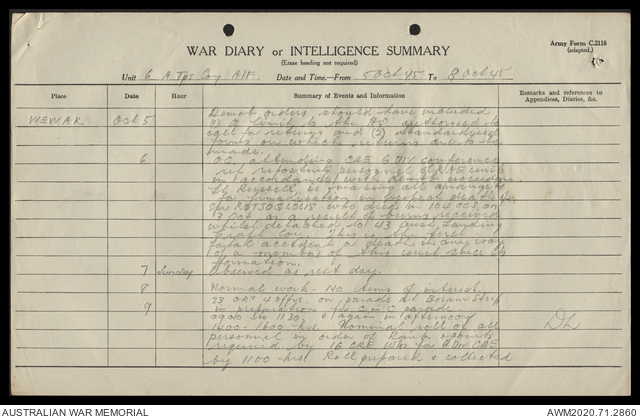 WAR DIARY or INTELLIGENCE SUMMARY
(Erase heading not required)
Army Form C.2118
(adapted.)
Unit 6 A Tps Coy AIF. Date and Time—From 5 Oct 45 To 8 Oct 45
Place Date Hour Summary of Events and Information Remarks and references to Appendices, Diaries, &c.
WEWAK Oct 5 Demob orders, should have included
(1) a limit to the authorised to
call for returns and (2) standardised
forms on which returns are to be
made.
6 OC, attending CRE 6 DIV conference
personnel of RAE units
in accordance with
Lt Russell, is making all arrange
for
Spr who died in 104 CCS on
Oct as a result of burns received
whilst detached to 43 Aust Landing
Craft Coy. This is the first
fatal accident & death in any way
of a member of this unit since its
formation.
7 Sunday Observed as rest day.
8 Normal work - No items of interest.
9 23 ORs 4 offrs. on parade at Boram Strip
in preparation for C-in-C parade
0900 to 1130 & again in afternoon
1400-1600 hrs. Nominal roll of all
personnel in order of Rank
required by 16 CRE Wks for
by 1100 hrs. Roll prepared & collected
AUSTRALIAN WAR MEMORIAL
AWM2020.71.2860